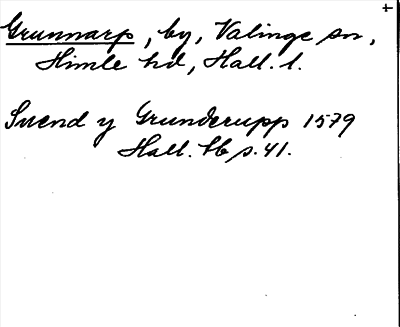 +
Grunnarp, by, Valinge sn,
Himle hd, Hall. l.
Svend y Grunderupp 1579
Hall. tb s. 41.